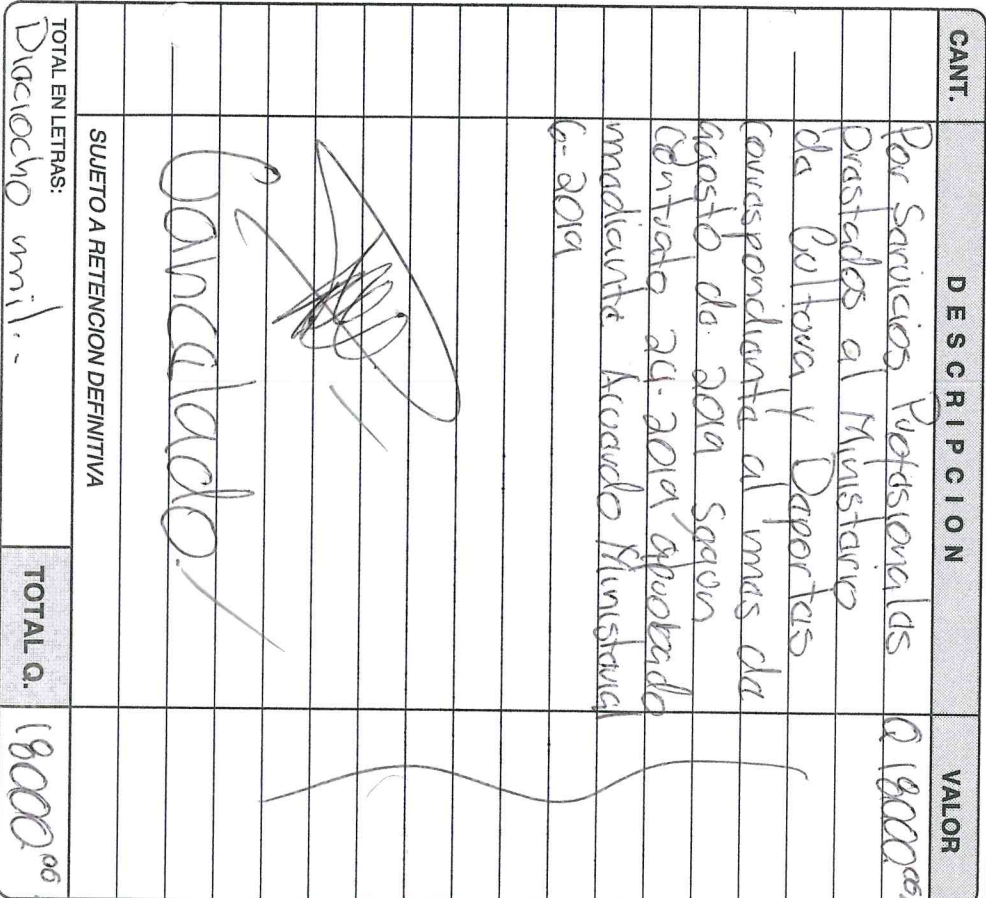 CANT. DESCRIPCION VALOR
Por Servicios Profesionales Q 18000.00
prestados al Ministerio
de Cultura y Deportes
correspondiente al mes de
agosto de 2019 según
contrato 24-2019 aprobado
mediante Acuerdo Ministerial
6-2019
Cancelado.
SUJETO A RETENCION DEFINITIVA
TOTAL EN LETRAS: TOTAL Q. 18000.00
Dieciocho mil.-